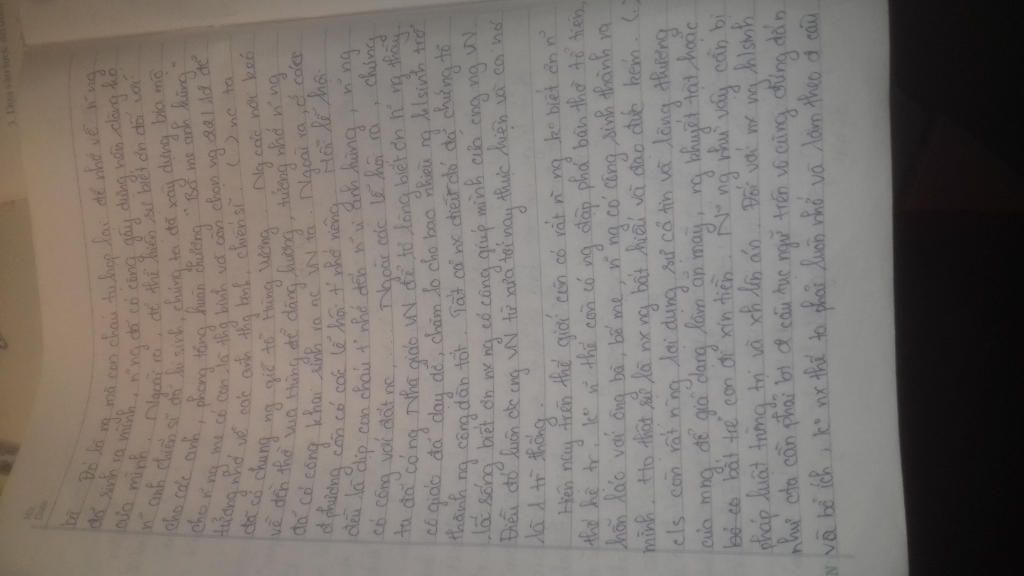 bè
Đó là ng mà con cháu tụ họp lại để nhớ về n~ ng
đã sinh ra mình, n~ ng đã có công gây dựng nên dòng họ
của mình. Ngoài ra, để thể hiện sự biết ơn đối với
n~ anh chiến sĩ đã hi sinh, chúng ta đã xây dựng bia mộ
cho các anh, phong tặng huân chương "Bà mẹ anh hùng"
cho n~ ng mẹ có con là thg binh và còn chọn ng 22/12 để
tưởng nhớ về các anh thg binh, chiến sĩ. ( ) nc ta
đã có chung ng giỗ tổ Hùng Vương. Ng các nơi kéo
về đền thờ vua Hùng để dâng hương, tưởng nhớ n~ ng
đã có công khai sinh ra nc VN ta. Ngoài ra, ở các
địa phương còn có các lễ hội Hồi lễ hội
đều là dịp con cháu t' nhớ đến n~ vị anh hùng, n~ ng
có công với đất nc. Ngoài các lễ hội ra, chúng
ta đã có ng Nhà giáo VN để tỏ lòng biết ơn n~ ng thầy,
cô giáo đã dạy dỗ, chăm lo cho bao nhiêu ng hsinh trở
thành ng công dân tốt. Tất cả nx điều đó đã chứng tỏ
lối sống biết ơn nx ng có công giúp mình của cng ng VN.
Điều đó luôn đc cng VN từ xưa tới nay thực hiện và coi nó
là 1 tr thống.
Hiện nay trên thế giới còn có rất n~ ng k° biết ơn n~
thế hệ tr, k° n~ thế còn có ng đập phá bàn thờ tổ tiên,
hỗn láo với ông bà, bố mẹ, n~ ng có công sinh thành ra
mình. Họ thật sự là nx ng bất hiếu và vô đạo đức. Trên ( )
c/s còn rất n~ ng lợi dụng sự cả tin và lòng thương
của mng để giả dạng làm ăn mày, ng khuyết tật hoặc
bắt trẻ con đi xin tiền. N~ ng như vậy cần bị
pháp luật trừng trị và xh lên án. Đối với nx ng h/sinh
như cta cần phải bt ơn câu tục ngữ trên vô cùng đúng đắn
và bổ ích, k° nx thế ta phải luôn nhớ và làm theo ở câu